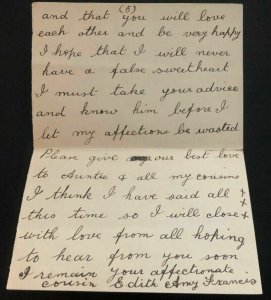 (5)
and that you will love
each other and be very happy
I hope that I will never
have a false sweetheart
I must take your advice
and know him before I
let my affections be wasted
Please give our best love
to Auntie & all my cousins
I think I have said all
this time so I will close
with love from all hoping
to hear from you soon
I remain your affectionate
cousin Edith Amy Francis